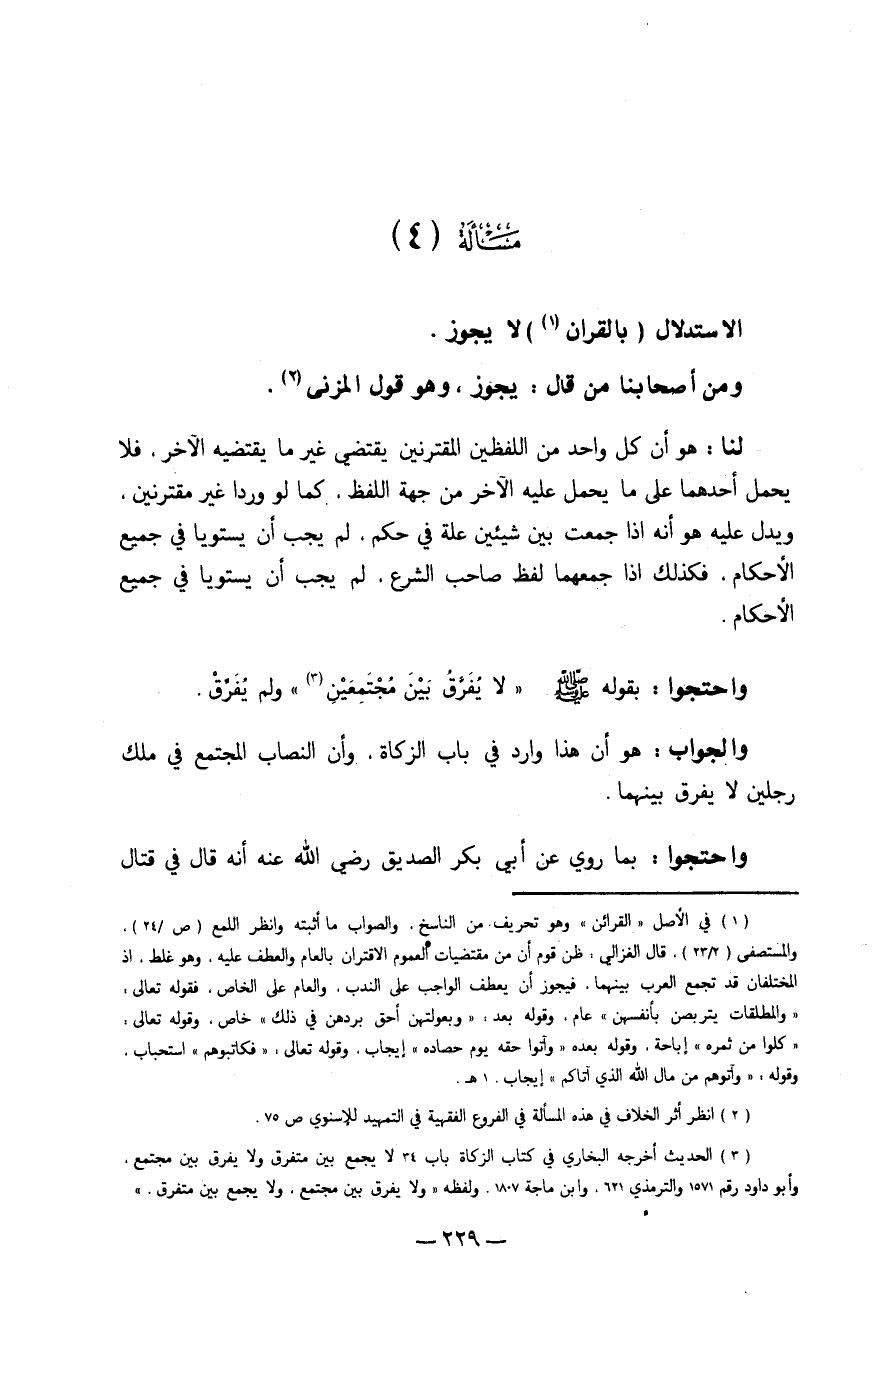 مَسْأَلَة ( ٤ )
الاستدلال ( بالقران (١) ) لا يجوز .
ومن أصحابنا من قال : يجوز ، وهو قول المزنى (٢) .
لنا : هو أن كل واحد من اللفظين المقترنين يقتضي غير ما يقتضيه الآخر ، فلا
يحمل أحدهما على ما يحمل عليه الآخر من جهة اللفظ ، كما لو وردا غير مقترنين ،
ويدل عليه هو أنه اذا جمعت بين شيئين علة في حكم ، لم يجب أن يستويا في جميع
الأحكام ، فكذلك اذا جمعهما لفظ صاحب الشرع ، لم يجب أن يستويا في جميع
الأحكام .
واحتجوا : بقوله ﷺ « لا يُفَرَّقُ بَيْنَ مُجْتَمِعَيْنِ (٣) » ولم يُفَرَّقْ .
والجواب : هو أن هذا وارد في باب الزكاة ، وأن النصاب المجتمع في ملك
رجلين لا يفرق بينهما .
واحتجوا : بما روي عن أبي بكر الصديق رضي الله عنه أنه قال في قتال
( ١ ) في الأصل « القرائن » وهو تحريف من الناسخ ، والصواب ما أثبته وانظر اللمع ( ص /٢٤ ) ،
والمستصفى ( ٢٣/٢ ) ، قال الغزالي : ظن قوم أن من مقتضيات العموم الاقتران بالعام والعطف عليه ، وهو غلط ، اذ
المختلفان قد تجمع العرب بينهما ، فيجوز أن يعطف الواجب على الندب ، والعام على الخاص ، فقوله تعالى :
« والمطلقات يتربصن بأنفسهن » عام ، وقوله بعد : « وبعولتهن أحق بردهن في ذلك » خاص ، وقوله تعالى :
« كلوا من ثمره » إباحة ، وقوله بعده « وآتوا حقه يوم حصاده » إيجاب ، وقوله تعالى : « فكاتبوهم » استحباب ،
وقوله : « وآتوهم من مال الله الذي آتاكم » إيجاب . ١ هـ .
( ٢ ) انظر أثر الخلاف في هذه المسألة في الفروع الفقهية في التمهيد للإسنوي ص ٧٥ .
( ٣ ) الحديث أخرجه البخاري في كتاب الزكاة باب ٣٤ لا يجمع بين متفرق ولا يفرق بين مجتمع ،
وأبو داود رقم ١٥٧١ والترمذي ٦٢١ ، وابن ماجة ١٨٠٧ . ولفظه « ولا يفرق بين مجتمع ، ولا يجمع بين متفرق . »
— ٢٢٩ —